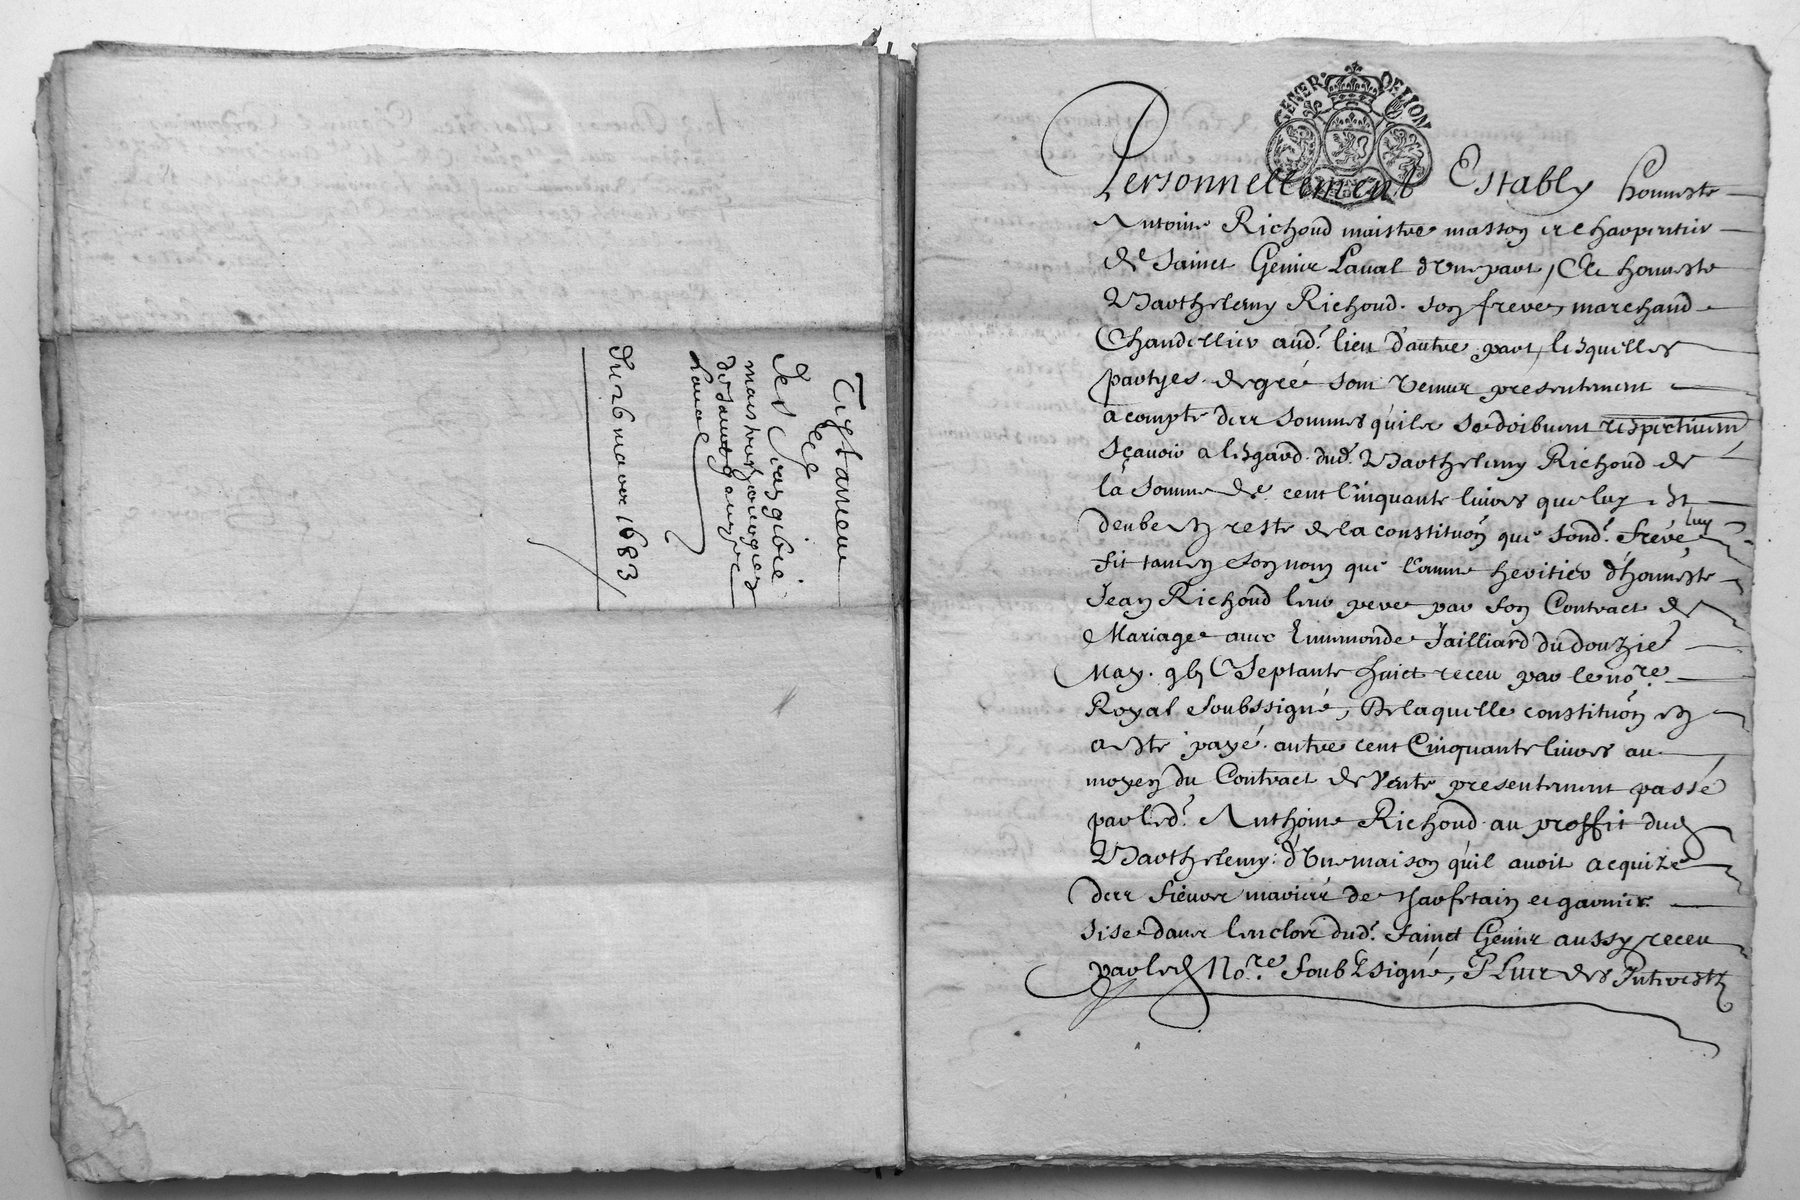 Testament
de
Jea
maistre
de Sainct Genys
Laual
du 26 mars 1683
GENER. DE LION
Personnellement Estably honneste
Antoine Richoud maistre masson et charpentier
de Sainct Genis Laual d'Vne part, Et honneste
Barthelemy Richoud son frere marchand
Chandellier aud.t lieu d'autre part, lesquelles
partyes de gré sont Venues presentement
a compte des sommes qu'ils se doibuent respectiuem
Sçauoir a l'esgard dud. Barthelemy Richoud de
la somme de cent Cinquante liures que luy est
deube en reste de la constituõn que sond. frere luy
fit tant en son nom que comme heritier d'honneste
Jean Richoud leur pere par son Contract de
Mariage auec Ennemonde Jailliard du douzie
May. gbj Septante huict receu par le no.re
Royal soubssigné, De laquelle constituõn en
a esté payé autre cent Cinquante liures au
moyen du Contract de Vente presentement passé
par led. Anthoine Richoud au proffit dud
Barthelemy d'Vne maison qu'il auoit acquize
des sieurs mariés de et garnier
sise dans l'enclos dud. Sainct Genis aussy receu
par led No.re Soubssigné, Plus des Interestz